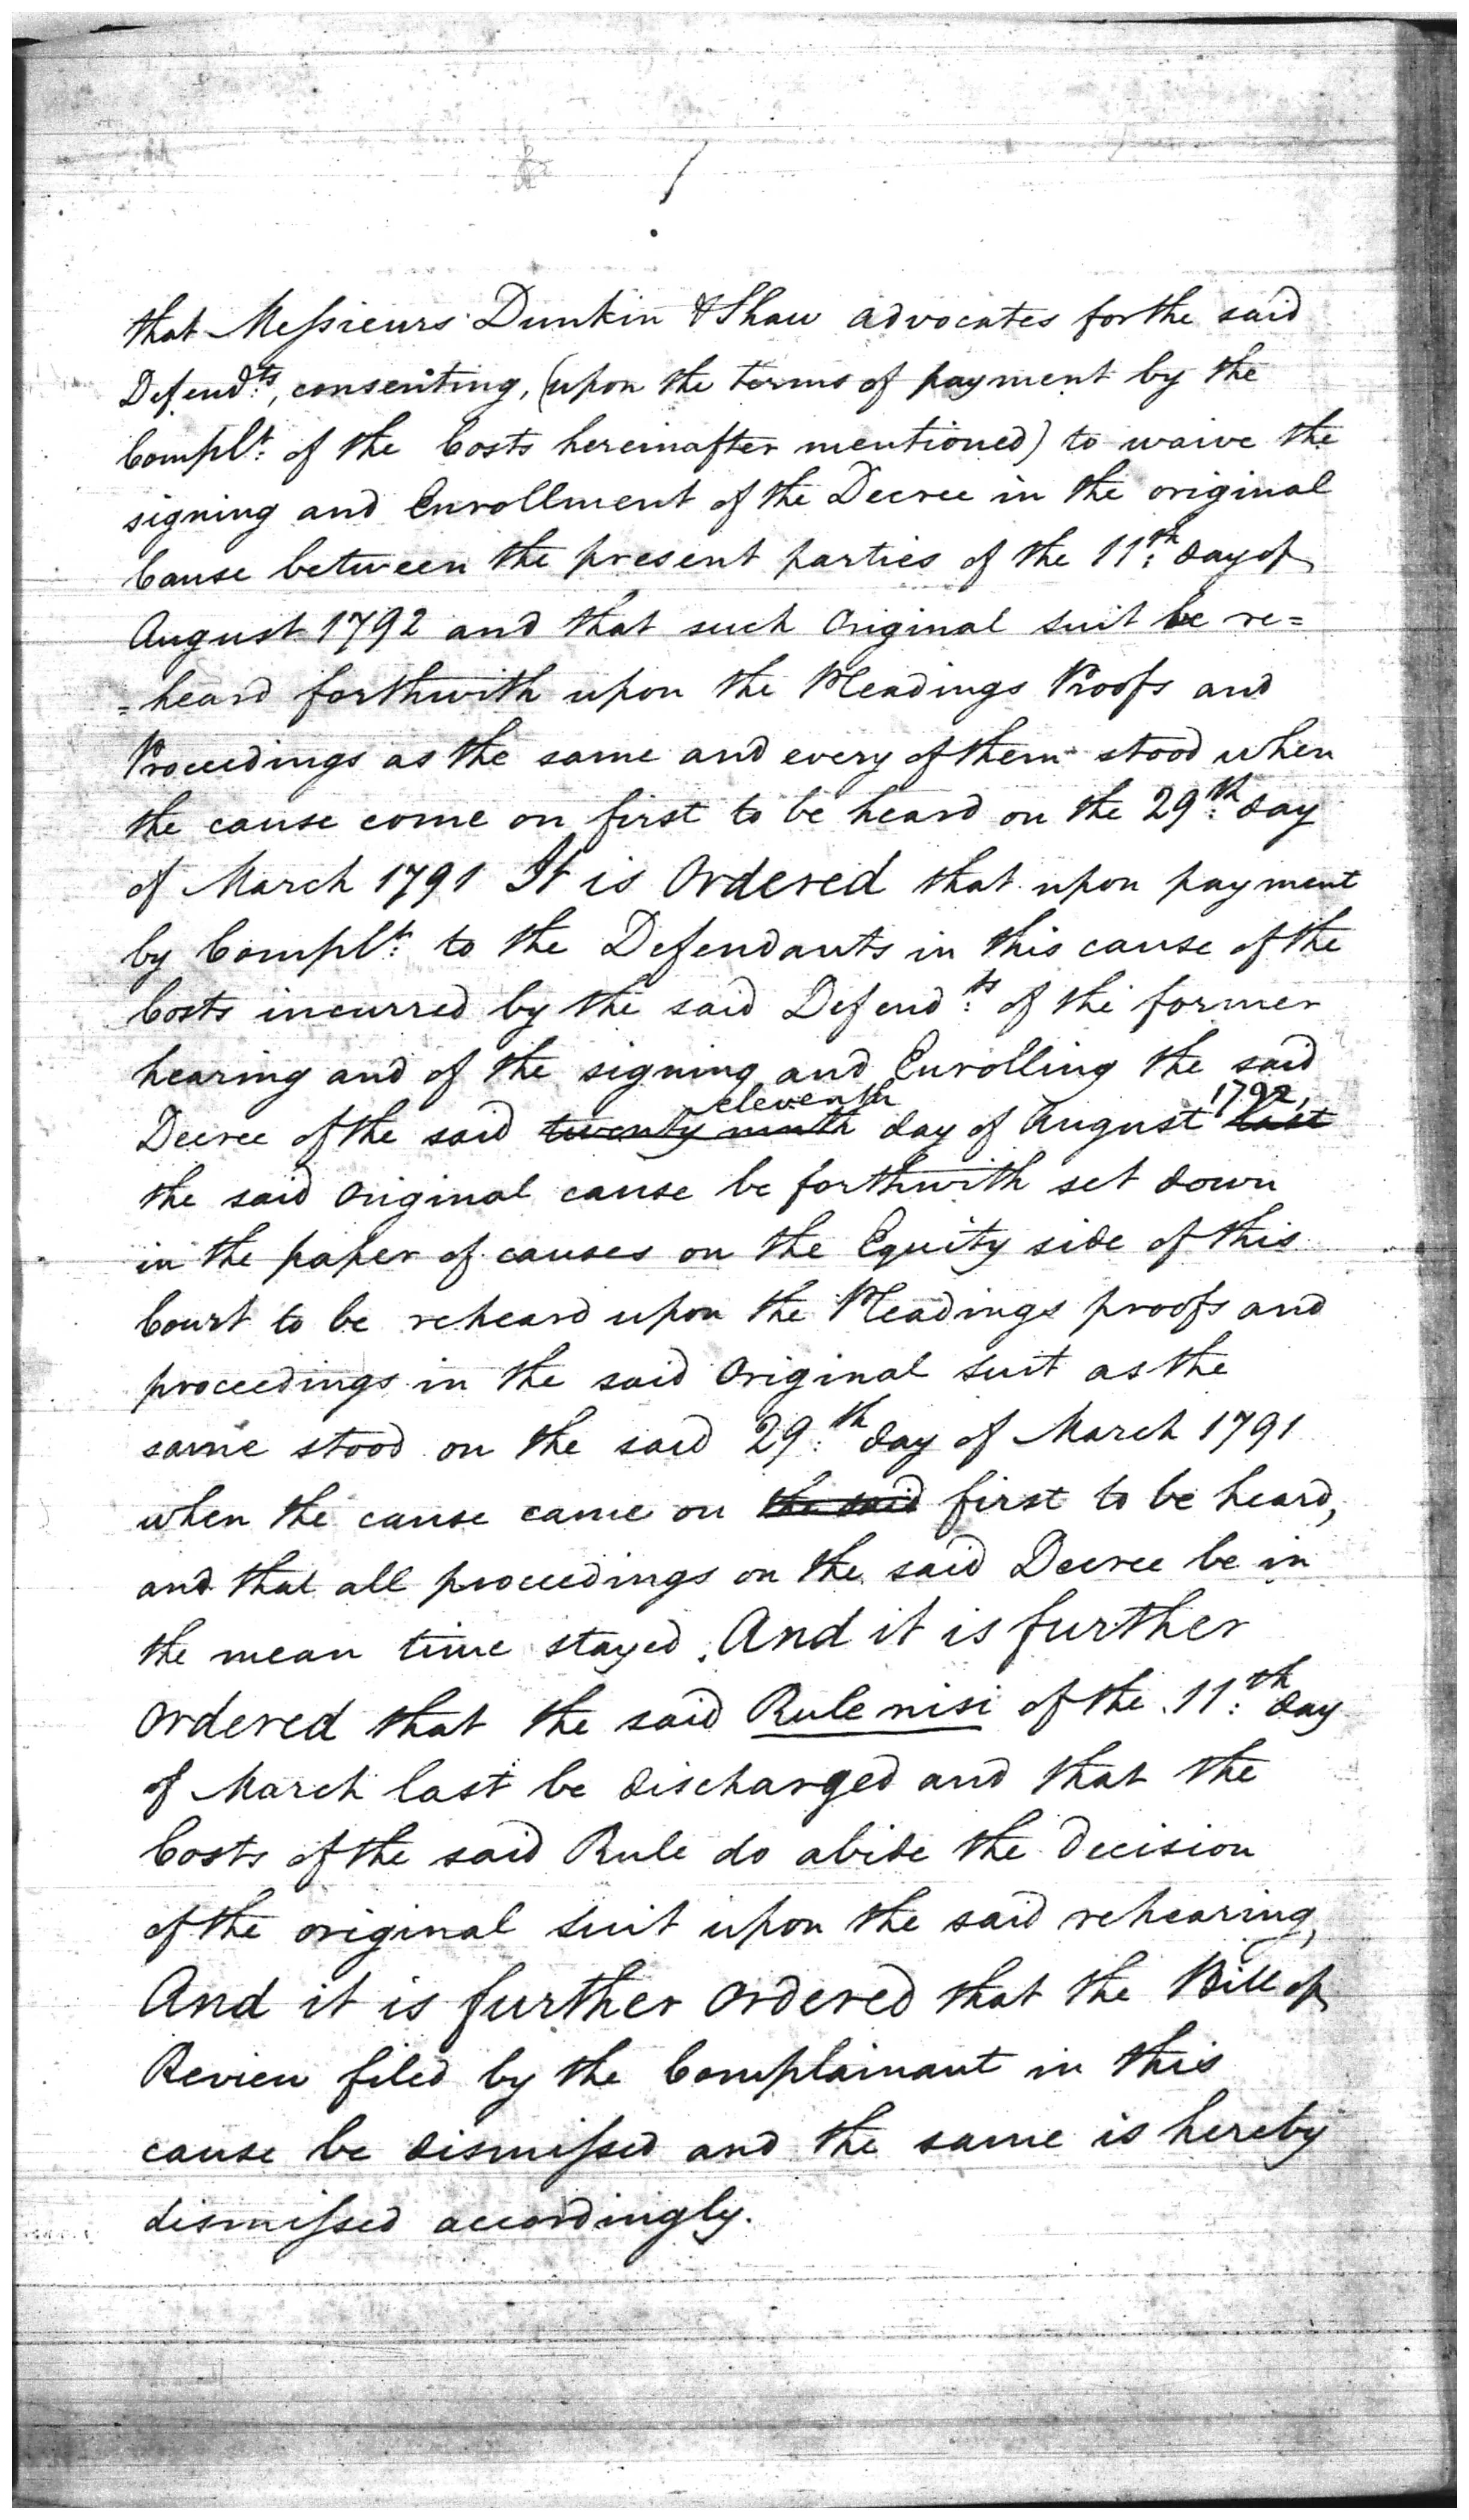 that Messieurs Dunkin & Shaw advocates for the said
Defend:ts, consenting, (upon the terms of payment by the
Complt: of the Costs hereinafter mentioned) to waive the
signing and Enrollment of the Decree in the original
Cause between the present parties of the 11:th day of
August 1792 and that such Original suit be re=
=heard forthwith upon the Pleadings Proofs and
Proceedings as the same and every of them stood when
the cause come on first to be heard on the 29:th day
of March 1791 It is Ordered that upon payment
by Complt: to the Defendants in this cause of the
Costs incurred by the said Defend:ts of the former
hearing and of the signing and Enrolling the said
eleventh 1792,
Decree of the said twenty ninth day of August last
the said Original cause be forthwith set down
in the paper of causes on the Equity side of this
Court to be reheard upon the Pleadings proofs and
proceedings in the said Original Suit as the
same stood on the said 29:th day of March 1791
when the cause came on the said first to be heard,
and that all proceedings on the said Decree be in
the mean time stayed. And it is further
ordered that the said Rule nisi of the 11:th day
of March last be discharged and that the
Costs of the said Rule do abide the Decision
of the original Suit upon the said rehearing,
And it is further ordered that the Bill of
Review filed by the Complainant in this
cause be dismissed and the same is hereby
dismissed accordingly.